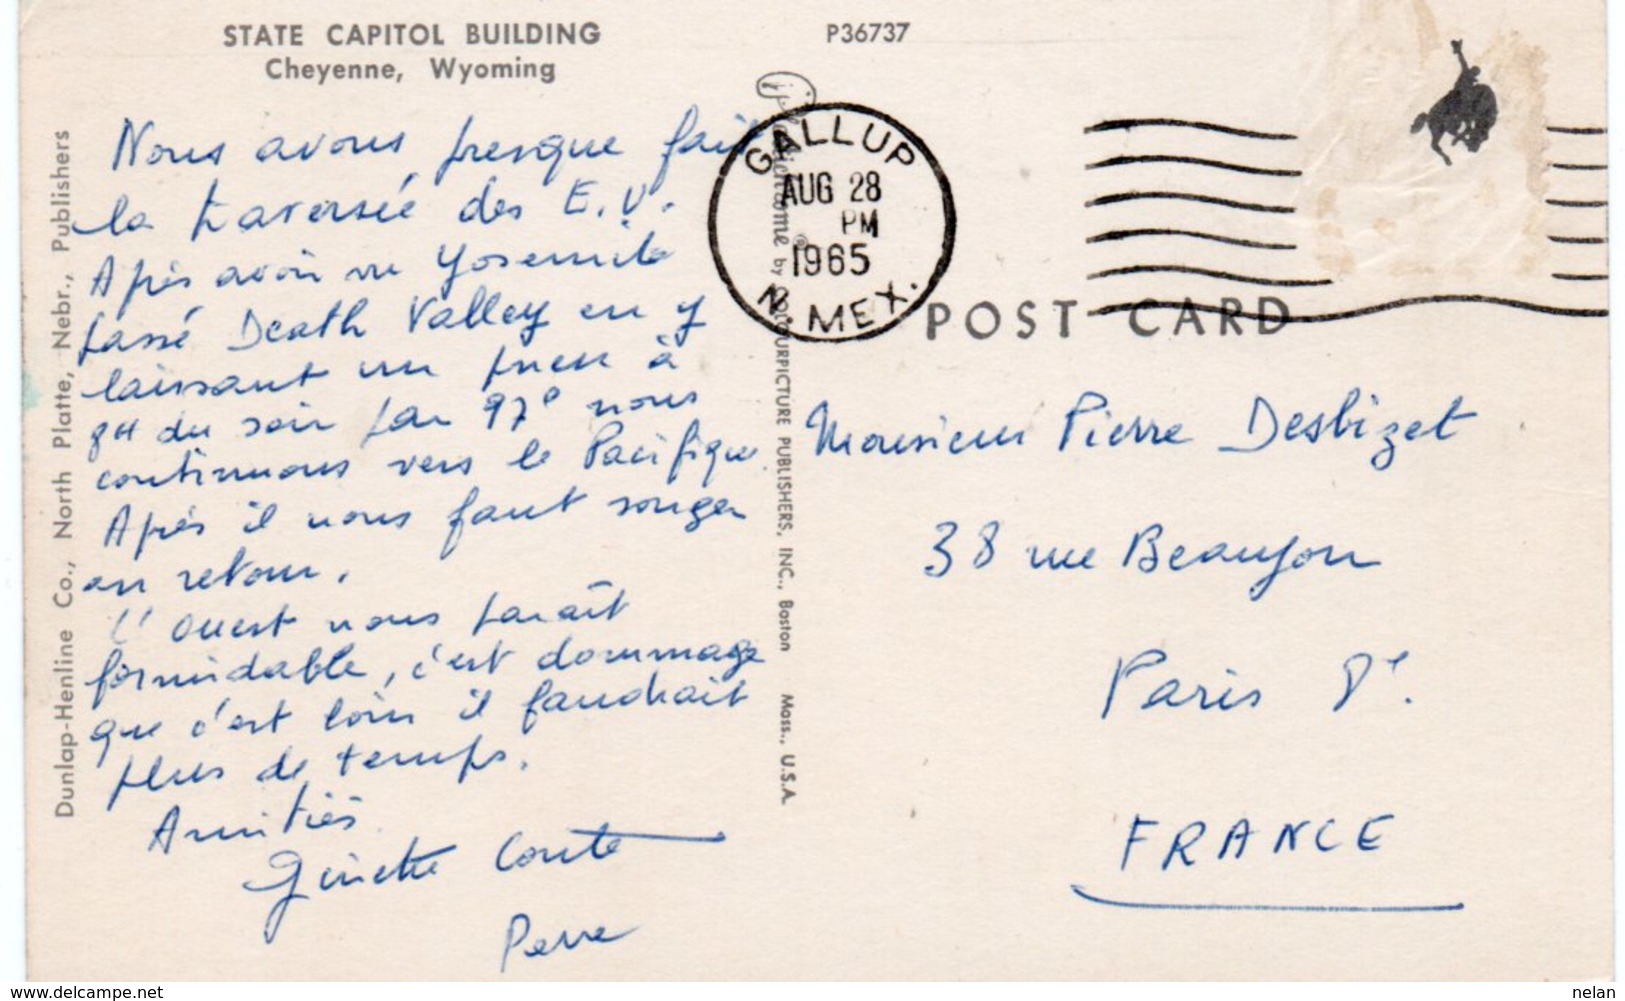 STATE CAPITOL BUILDING
Cheyenne, Wyoming
P36737
Dunlap-Henline Co., North Platte, Nebr., Publishers
Nous avons presque fait
la traversée des E.U.
Après avoir vu Yosemite
passé Death Valley en y
laissant un pneu à
8H du soir par 97° nous
continuons vers le Pacifique
Après il nous faut songer
au retour.
L'ouest nous paraît
formidable, c'est dommage
que c'est loin il faudrait
plus de temps.
Amitiés
Ginette
Pierre
by COLOURPICTURE PUBLISHERS, INC., Boston Mass., U.S.A.
GALLUP
AUG 28
PM
1965
N. MEX.
POST CARD
Monsieur Pierre Desbizet
38 rue Beaujon
Paris 8e.
FRANCE
delcampe.net
nelan